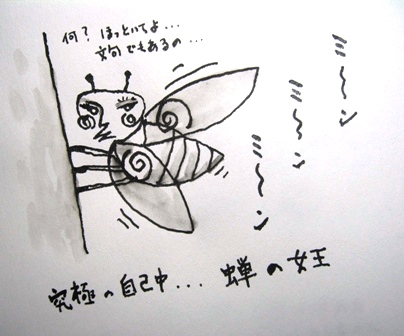 何? ほっといてよ...
文句でもあるの...
ミ〜〜ン
ミ〜〜ン
ミ〜〜ン
究極の自己中... 蝉の女王